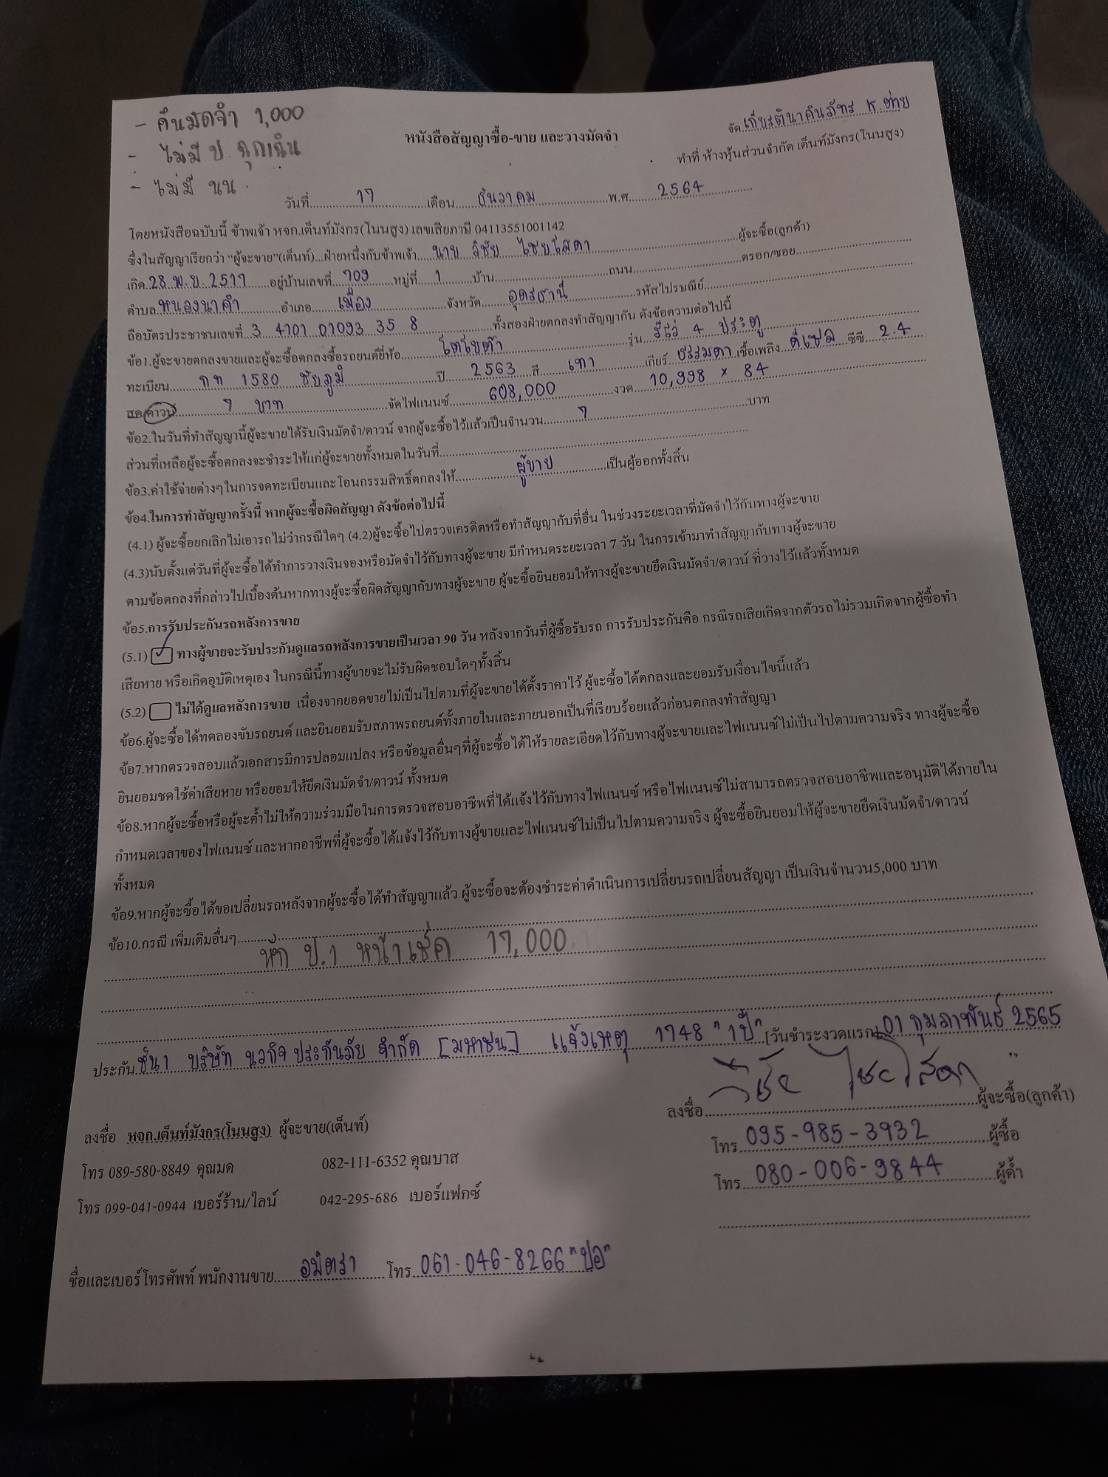 - คืนมัดจำ 1,000
- ไม่มี ป ฉุกเฉิน
- ไม่มี นน.
จัด เกียรตินาคินภัทร
หนังสือสัญญาซื้อ-ขาย และวางมัดจำ
ทำที่ ห้างหุ้นส่วนจำกัด เต็นท์มังกร(โนนสูง)
วันที่ 17 เดือน ธันวาคม พ.ศ. 2564
โดยหนังสือฉบับนี้ ข้าพเจ้า หจก.เต็นท์มังกร(โนนสูง) เลขเสียภาษี 04113551001142
ซึ่งในสัญญาเรียกว่า "ผู้จะขาย"(เต็นท์)...ฝ่ายหนึ่งกับข้าพเจ้า นาย วิชัย ไชยโสดา ผู้จะซื้อ(ลูกค้า)
เกิด 28 พ.ย. 2517 อยู่บ้านเลขที่ 709 หมู่ที่ 1 บ้าน ถนน ตรอก/ซอย
ตำบล หนองนาคำ อำเภอ เมือง จังหวัด อุดรธานี รหัสไปรษณีย์
ถือบัตรประชาชนเลขที่ 3 4701 01093 35 8 ทั้งสองฝ่ายตกลงทำสัญญากัน ดังข้อความต่อไปนี้
ข้อ1.ผู้จะขายตกลงขายและผู้จะซื้อตกลงซื้อรถยนต์ยี่ห้อ โตโยต้า รุ่น รีโว่ 4 ประตู
ทะเบียน กท 1580 ชัยภูมิ ปี 2563 สี เทา เกียร์ ธรรมดา เชื้อเพลิง ดีเซล ซีซี 2.4
สด/ดาวน์ 7 บาท จัดไฟแนนซ์ 608,000 งวด 10,998 × 84
ข้อ2.ในวันที่ทำสัญญานี้ผู้จะขายได้รับเงินมัดจำ/ดาวน์ จากผู้จะซื้อไว้แล้วเป็นจำนวน 7 บาท
ส่วนที่เหลือผู้จะซื้อตกลงจะชำระให้แก่ผู้จะขายทั้งหมดในวันที่
ข้อ3.ค่าใช้จ่ายต่างๆในการจดทะเบียนและโอนกรรมสิทธิ์ตกลงให้ ผู้ขาย เป็นผู้ออกทั้งสิ้น
ข้อ4.ในการทำสัญญาครั้งนี้ หากผู้จะซื้อผิดสัญญา ดังข้อต่อไปนี้
(4.1) ผู้จะซื้อยกเลิกไม่เอารถ ไม่ว่ากรณีใดๆ (4.2)ผู้จะซื้อไปตรวจเครดิตหรือทำสัญญากับที่อื่น ในช่วงระยะเวลาที่มัดจำไว้กับทางผู้จะขาย
(4.3)นับตั้งแต่วันที่ผู้จะซื้อได้ทำการวางเงินจองหรือมัดจำไว้กับทางผู้จะขาย มีกำหนดระยะเวลา 7 วัน ในการเข้ามาทำสัญญากับทางผู้จะขาย
ตามข้อตกลงที่กล่าวไปเบื้องต้นหากทางผู้จะซื้อผิดสัญญากับทางผู้จะขาย ผู้จะซื้อยินยอมให้ทางผู้จะขายยึดเงินมัดจำ/ดาวน์ ที่วางไว้แล้วทั้งหมด
ข้อ5.การรับประกันรถหลังการขาย
(5.1) ✓ ทางผู้ขายจะรับประกันดูแลรถหลังการขายเป็นเวลา 90 วัน หลังจากวันที่ผู้ซื้อรับรถ การรับประกันคือ กรณีรถเสียเกิดจากตัวรถไม่รวมเกิดจากผู้ซื้อทำ
เสียหาย หรือเกิดอุบัติเหตุเอง ในกรณีนี้ทางผู้ขายจะไม่รับผิดชอบใดๆทั้งสิ้น
(5.2) ไม่ได้ดูแลหลังการขาย เนื่องจากยอดขายไม่เป็นไปตามที่ผู้จะขายได้ตั้งราคาไว้ ผู้จะซื้อได้ตกลงและยอมรับเงื่อนไขนี้แล้ว
ข้อ6.ผู้จะซื้อได้ทดลองขับรถยนต์ และยินยอมรับสภาพรถยนต์ทั้งภายในและภายนอกเป็นที่เรียบร้อยแล้วก่อนตกลงทำสัญญา
ข้อ7.หากตรวจสอบแล้วเอกสารมีการปลอมแปลง หรือข้อมูลอื่นๆที่ผู้จะซื้อได้ให้รายละเอียดไว้กับทางผู้จะขายและไฟแนนซ์ไม่เป็นไปตามความจริง ทางผู้จะซื้อ
ยินยอมชดใช้ค่าเสียหาย หรือยอมให้ยึดเงินมัดจำ/ดาวน์ ทั้งหมด
ข้อ8.หากผู้จะซื้อหรือผู้จะค้ำไม่ให้ความร่วมมือในการตรวจสอบอาชีพที่ได้แจ้งไว้กับทางไฟแนนซ์ หรือไฟแนนซ์ไม่สามารถตรวจสอบอาชีพและอนุมัติได้ภายใน
กำหนดเวลาของไฟแนนซ์ และหากอาชีพที่ผู้จะซื้อได้แจ้งไว้กับทางผู้ขายและไฟแนนซ์ไม่เป็นไปตามความจริง ผู้จะซื้อยินยอมให้ผู้จะขายยึดเงินมัดจำ/ดาวน์
ทั้งหมด
ข้อ9.หากผู้จะซื้อได้ขอเปลี่ยนรถหลังจากผู้จะซื้อได้ทำสัญญาแล้ว ผู้จะซื้อจะต้องชำระค่าดำเนินการเปลี่ยนรถเปลี่ยนสัญญา เป็นเงินจำนวน5,000 บาท
ข้อ10.กรณี เพิ่มเติมอื่นๆ
หัก ป.1 หน้าเช็ค 17,000
ประกัน ชั้น1 บริษัท นวกิจ ประกันภัย จำกัด [มหาชน] แจ้งเหตุ 1748 "1ปี" (วันชำระงวดแรก) 01 กุมภาพันธ์ 2565
ลงชื่อ วิชัย ไชยโสดา ผู้จะซื้อ(ลูกค้า)
ลงชื่อ หจก.เต็นท์มังกร(โนนสูง) ผู้จะขาย(เต็นท์)
โทร 095-985-3932 ผู้ซื้อ
โทร 089-580-8849 คุณมด 082-111-6352 คุณบาส
โทร 080-006-9844 ผู้ค้ำ
โทร 099-041-0944 เบอร์ร้าน/ไลน์ 042-295-686 เบอร์แฟกซ์
ชื่อและเบอร์โทรศัพท์ พนักงานขาย อมิตรา โทร 061-046-8266 "ปอ"